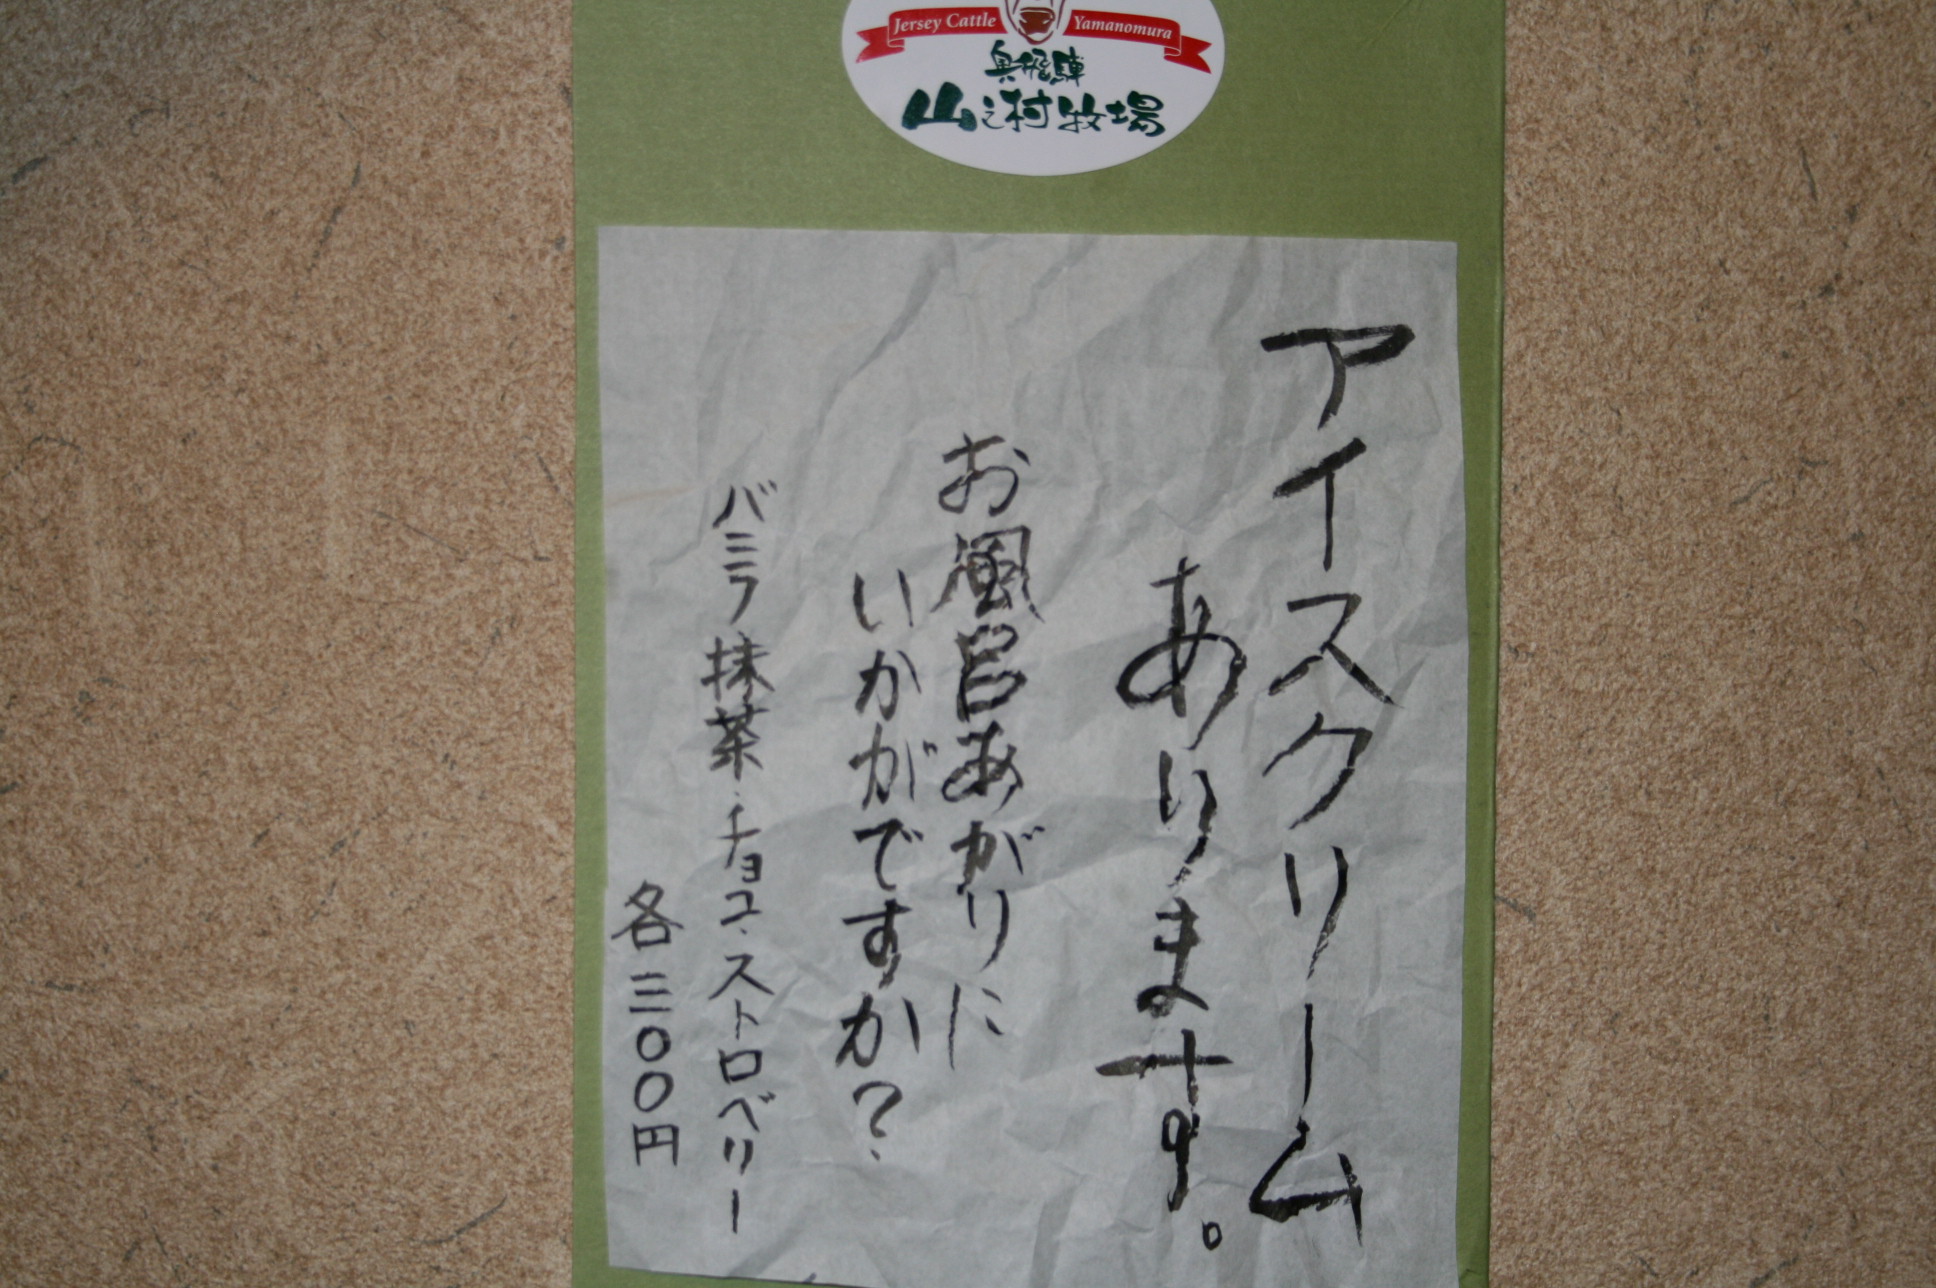 Jersey Cattle Yamanomura
奥飛騨
山之村牧場
アイスクリーム
あります。
お風呂あがりに
いかがですか?
バニラ抹茶・チョコ・ストロベリー
各三〇〇円